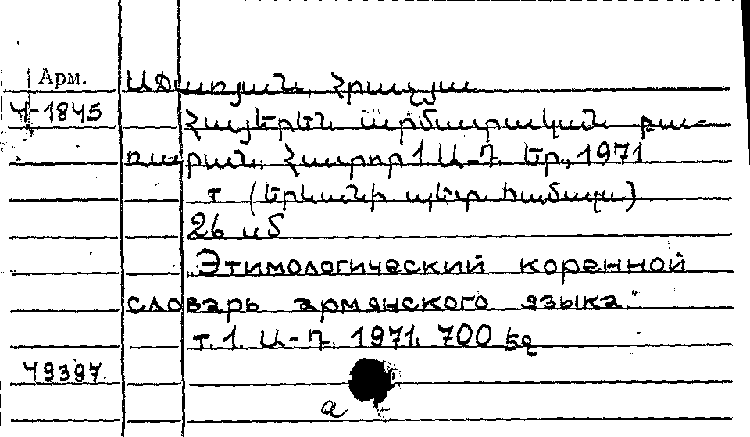 Арм. Աճառյան, Հրաչյա
Ч-1845 Հայերեն արմատական բա-
ռարան. Հատոր 1 Ա-Դ. Եր., 1971
т (Երևանի պետ. համալս)
26 սմ
Этимологический коренной
словарь армянского языка.
т. 1. Ա-Դ 1971. 700 էջ
49397
a